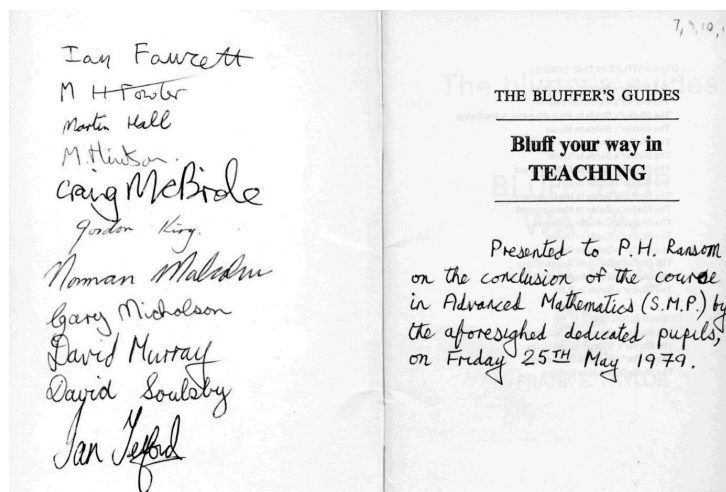 Ian Fawcett
M H Fowler
Martin Hall
M. Hewson.
Craig McBride
Gordon King.
Norman Malcolm
Gary Micholson
David Murray
David Soulsby
Ian Telford
7, 9, 10,
THE BLUFFER'S GUIDES
Bluff your way in
TEACHING
Presented to P.H. Ransom
on the conclusion of the course
in Advanced Mathematics (S.M.P.) by
the aforesighed dedicated pupils,
on Friday 25TH May 1979.